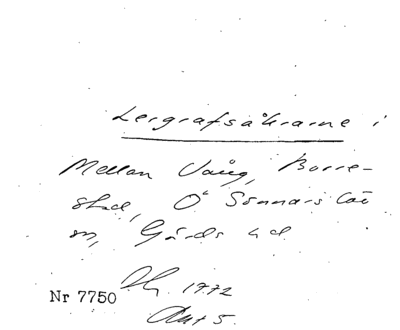 Lergrafsåkrarne i
Mellan Vång, Borre-
stad, Ö Sönnarslöv
sn, Gärds hd
1772
Nr 7750
Akt 5.